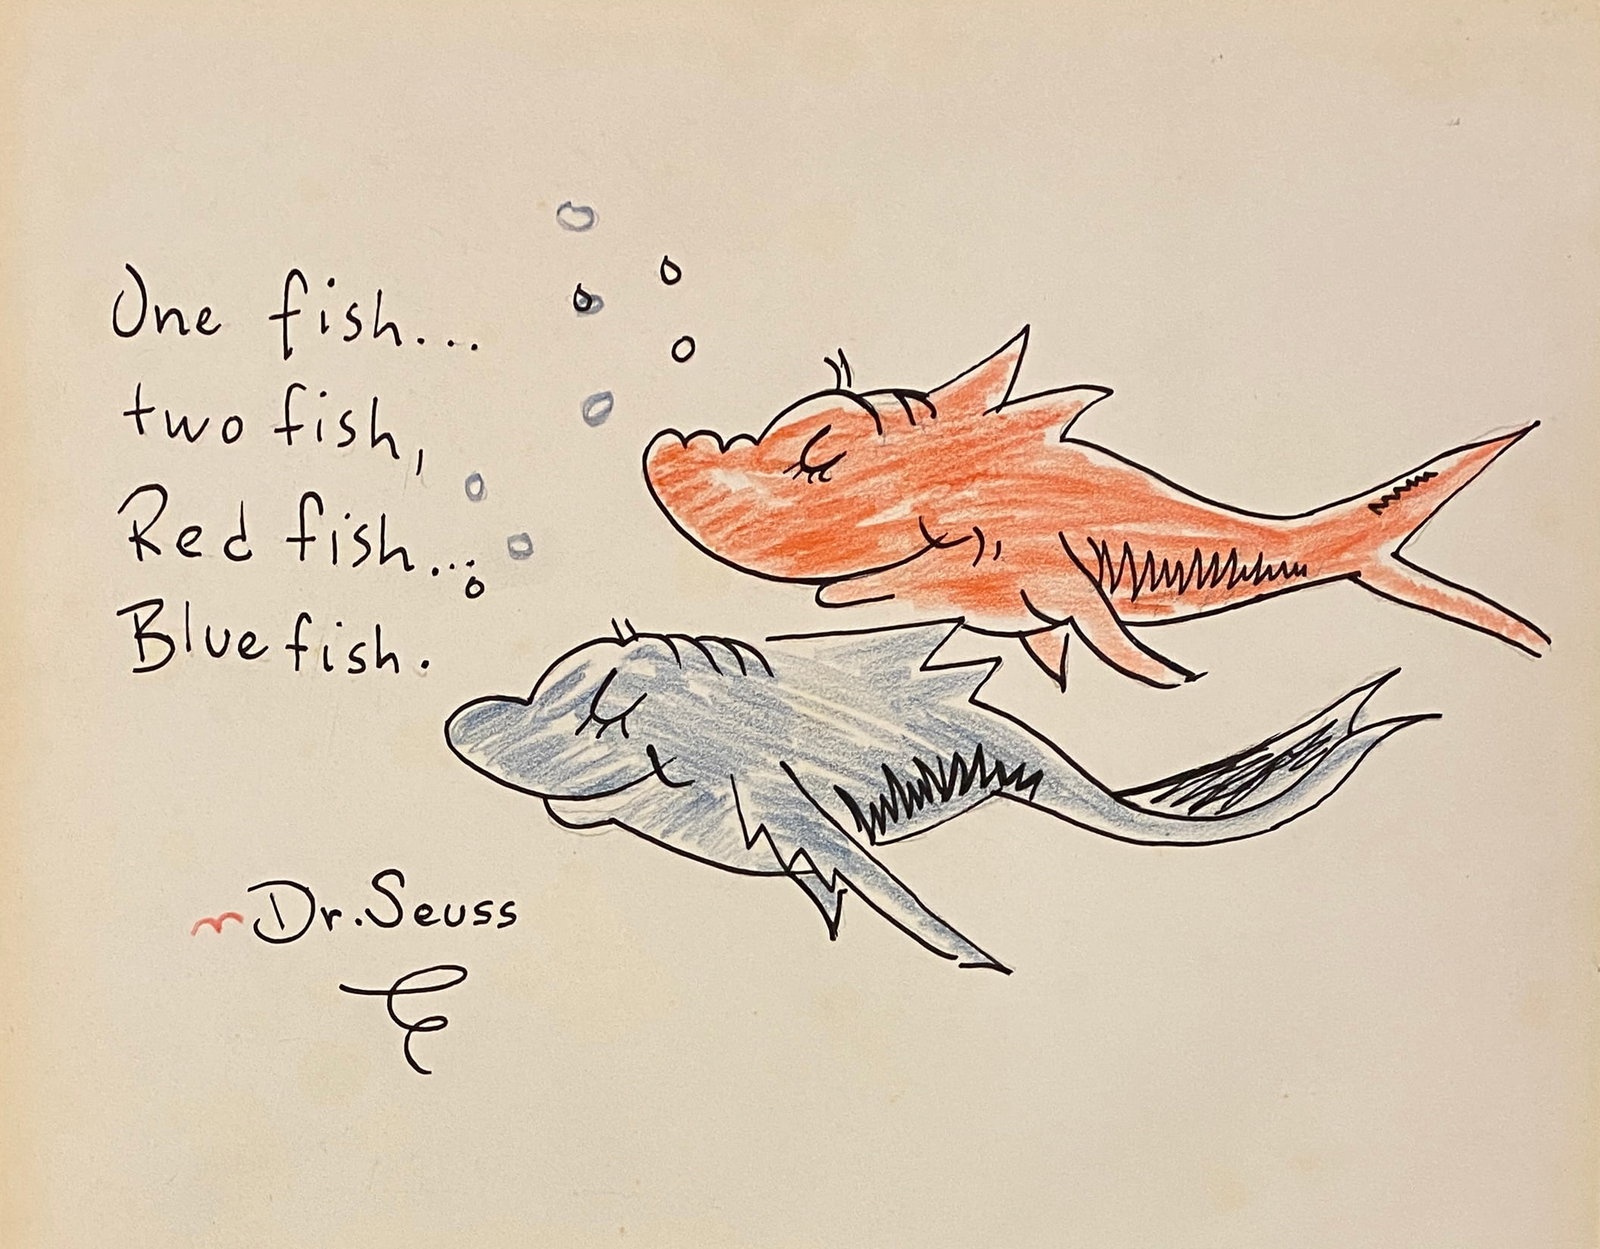 One fish...
two fish,
Red fish...
Blue fish.
~Dr. Seuss